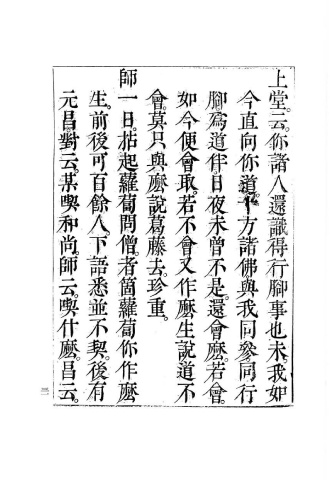 上堂。云。你諸人還識得行腳事也未。我如
今直向你道。十方諸佛與我同參同行
腳為道伴。日夜未曾不是。還會麼。若會。
如今便會取。若不會又作麼生說道不
會。莫只與麼說葛藤去。珍重。
師一日。拈起蘿蔔問僧。者箇蘿蔔你作麼
生。前後可百餘人。下語悉並不契。後有
元昌對云。某喫和尚。師云。喫什麼。昌云。